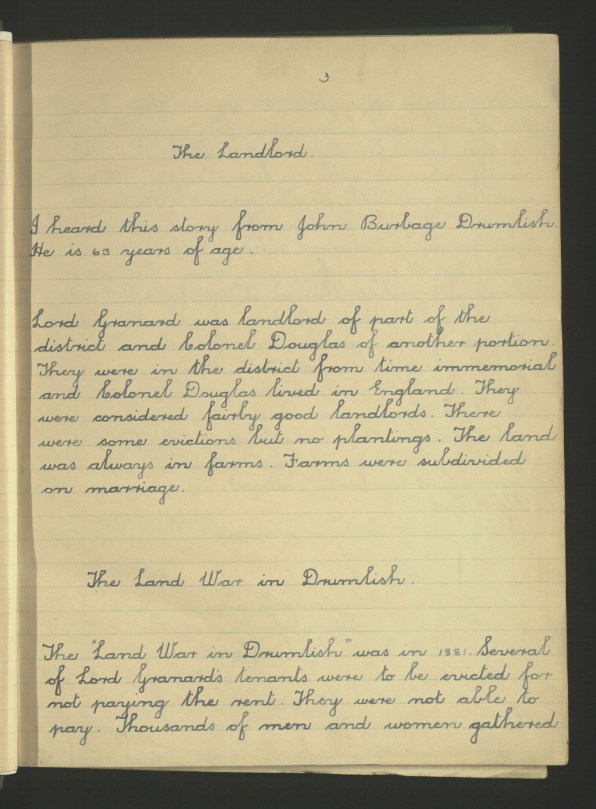 3
The Landlord.
I heard this story from John Burbage Drumlish.
He is 63 years of age.
Lord Granard was landlord of part of the
district and Colonel Douglas of another portion.
They were in the district from time immemorial
and Colonel Douglas lived in England. They
were considered fairby good landlords. There
were some evictions but no plantings. The land
was always in farms. Farms were subdivided
on marriage.
The Land War in Drumlish.
The "Land War in Drumlish" was in 1881. Several
of Lord Granard's tenants were to be evicted for
not paying the rent. They were not able to
pay. Thousands of men and women gathered